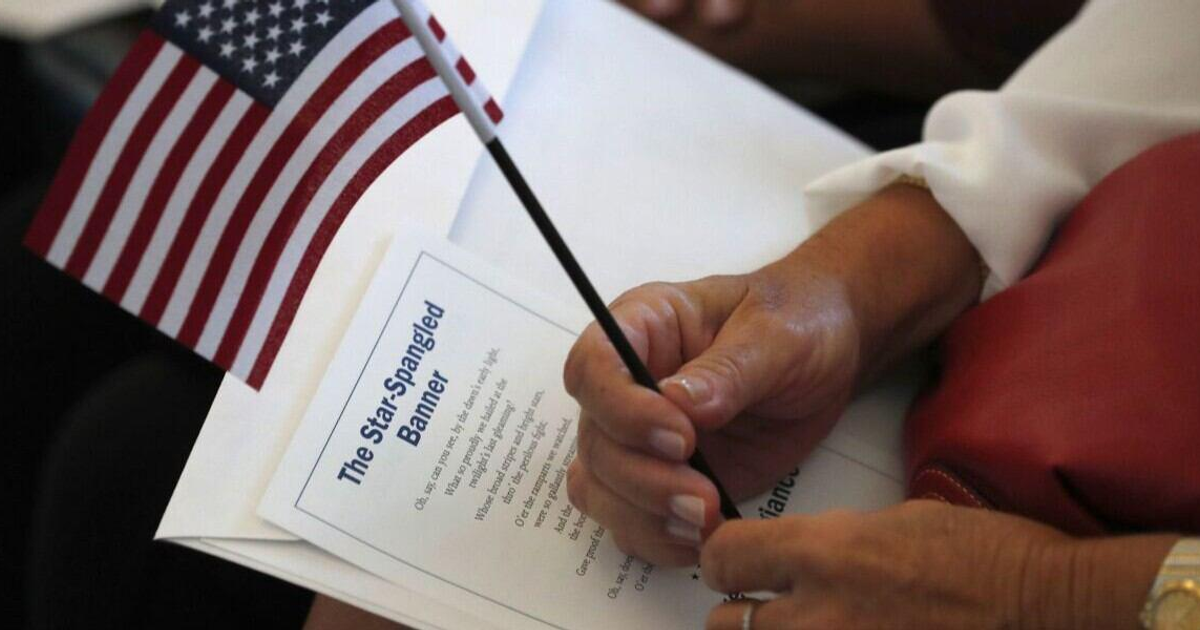 The Star-Spangled
Banner
Oh, say, can you see, by the dawn's early light,
What so proudly we hailed at the
twilight's last gleaming?
Whose broad stripes and bright stars,
thro' the perilous fight,
O'er the ramparts we watched,
were so gallantly
And the
the
Gave proof
Oh, say,
O'er
iance